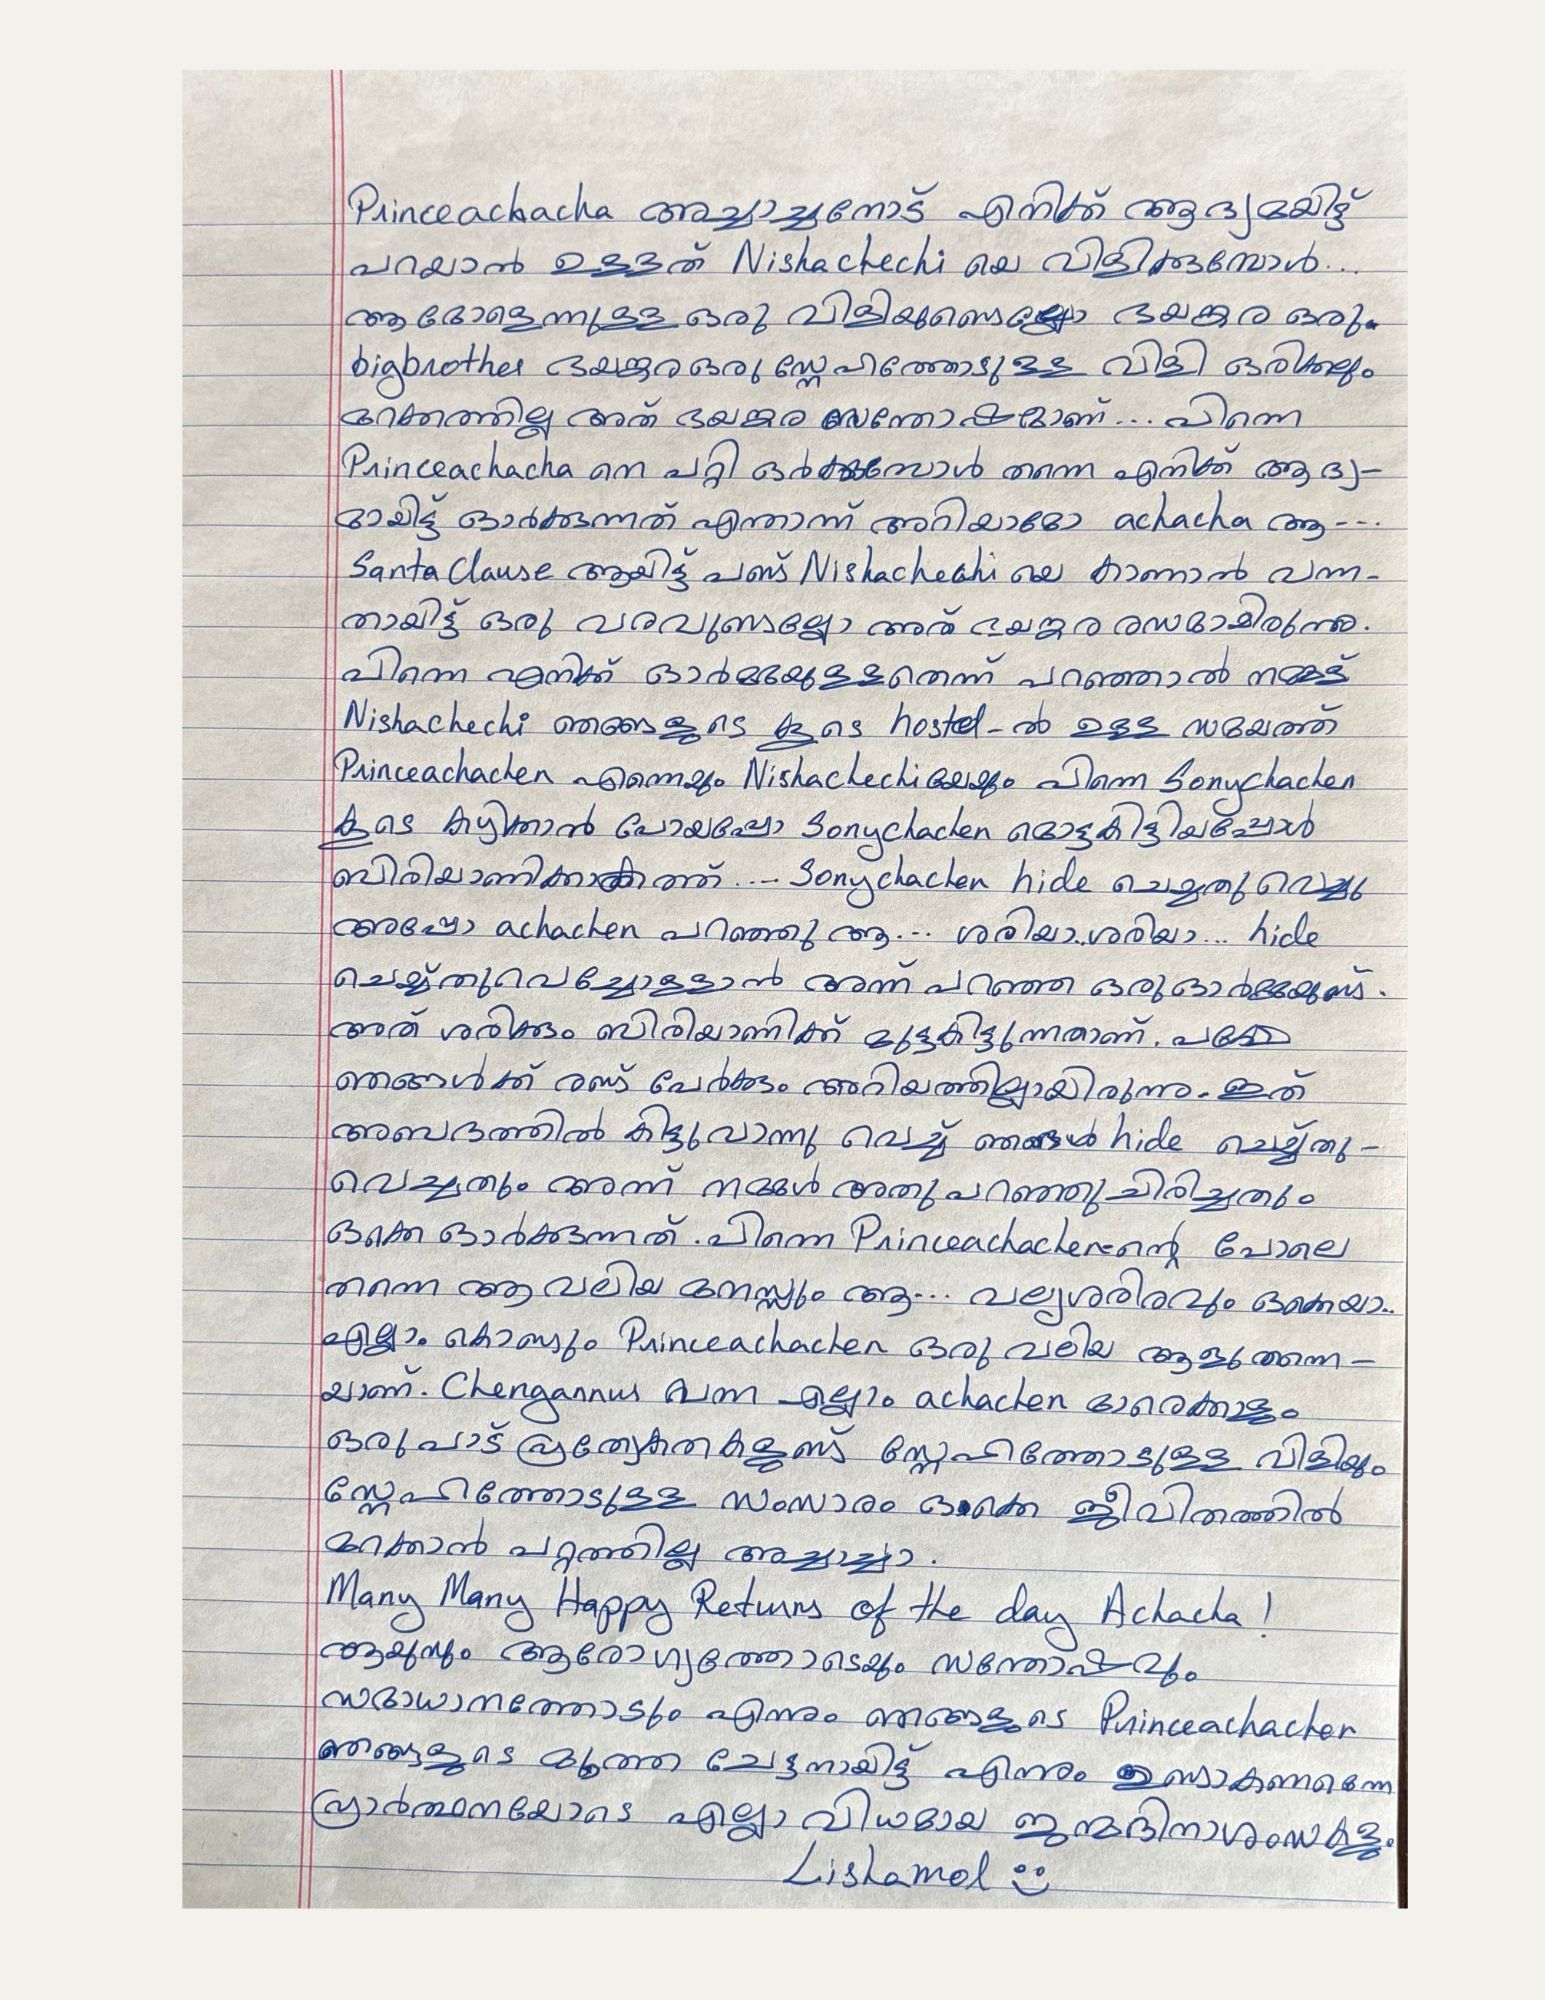 Princeachacha അച്ചാച്ചനോട് എനിക്ക് ആദ്യമയിട്ട്
പറയാൻ ഉള്ളത് Nishachechi യെ വിളിക്കുമ്പോൾ...
ആ മോളെന്നുള്ള ഒരു വിളിയുണ്ടെല്ലോ ഭയങ്കര ഒരു.
bigbrother ഭയങ്കര ഒരു സ്നേഹത്തോടുള്ള വിളി ഒരിക്കലും
മറക്കത്തില്ല അത് ഭയങ്കര സന്തോഷമാണ്... പിന്നെ
Princeachacha നെ പറ്റി ഓർക്കുമ്പോൾ തന്നെ എനിക്ക് ആദ്യ-
മായിട്ട് ഓർക്കുന്നത് എന്താന്ന് അറിയാമോ achacha ആ---
Santa Clause ആയിട്ട് പണ്ട് Nishachechi യെ കാണാൻ വന്ന-
തായിട്ട് ഒരു വരവുണ്ടല്ലോ അത് ഭയങ്കര രസമായിരുന്നു.
പിന്നെ എനിക്ക് ഓർമ്മയുള്ളതെന്ന് പറഞ്ഞാൽ നമ്മട്ട്
Nishachechi ഞങ്ങളുടെ കൂടെ hostel-ൽ ഉള്ള സമയത്ത്
Princeachachen എന്നെയും Nishachechiയെയും പിന്നെ Sonychachen
കൂടെ കഴിക്കാൻ പോയപ്പോ Sonychachen മൊട്ടകിട്ടിയപ്പോൾ
ബിരിയാണിക്കകത്ത് .... Sonychachen hide ചെയ്തു വെച്ചു
അപ്പോ achachen പറഞ്ഞു ആ... ശരിയാ..ശരിയാ... hide
ചെയ്ത്തുവെച്ചോള്ളാൻ അന്ന് പറഞ്ഞ ഒരു ഓർമ്മയുണ്ട്.
അത് ശരിക്കും ബിരിയാണിക്ക് മുട്ടകിട്ടുന്നതാണ്. പക്ഷേ
ഞങ്ങൾക്ക് രണ്ട് പേർക്കും അറിയത്തില്ലായിരുന്നു. ഇത്
അബദ്ധത്തിൽ കിട്ടുവാന്നു വെച്ച് ഞങ്ങൾ hide ചെയ്ത്തു-
വെച്ചതും അന്ന് നമ്മൾ അതു പറഞ്ഞു ചിരിച്ചതും
ഒക്കെ ഓർക്കുന്നത്. പിന്നെ Princeachachen-ന്റെ പോലെ
തന്നെ ആ വലിയ മനസ്സും ആ... വല്യശരിരവും ഒക്കെയാ..
എല്ലാം കൊണ്ടും Princeachachen ഒരു വലിയ ആളു തന്നെ-
യാണ്. Chengannur വന്ന എല്ലാം achachen മാരെക്കാളും
ഒരുപാട് പ്രത്യേകതകളുണ്ട് സ്നേഹത്തോടുള്ള വിളിയും
സ്നേഹത്തോടുള്ള സംസാരം ഒക്കെ ജീവിതത്തിൽ
മറക്കാൻ പറ്റത്തില്ല അച്ചാച്ചാ.
Many Many Happy Returns of the day Achacha!
ആയുസും ആരോഗ്യത്തോടെയും സന്തോഷവും
സമാധാനത്തോടും എന്നും ഞങ്ങളുടെ Princeachachen
ഞങ്ങളുടെ മൂത്ത ചേട്ടനായിട്ട് എന്നും ഉണ്ടാകണമെന്നേ
പ്രാർത്ഥനയോടെ എല്ലാ വിധമായ ജന്മദിനാശംസകളും
Lishamol